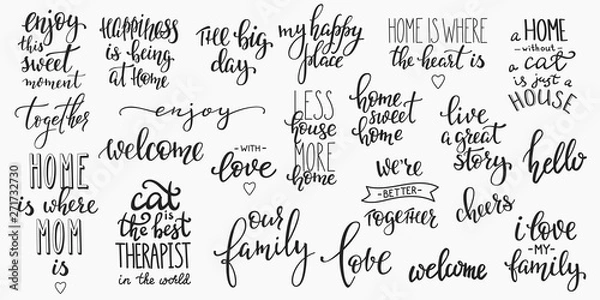 enjoy
this
sweet
moment
Happiness
is being
at Home
THE big
day
my happy
place
HOME IS WHERE
the heart is
a HOME
without
a cat
is just a
HOUSE
together
enjoy
LESS
house
MORE
home
home
sweet
home
live
a great
story
hello
welcome
WITH
love
HOME
is where
MOM
is
cat
is
the best
THERAPIST
in the world
our
family
we're
BETTER
TOGETHER
cheers
love
welcome
i love
MY
family
Adobe Stock | #271732730